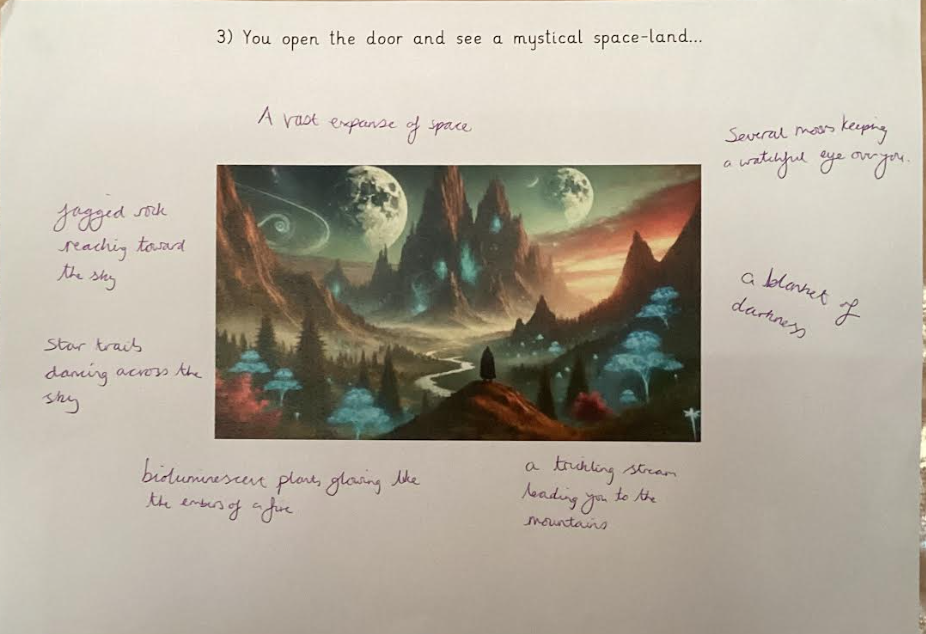 3) You open the door and see a mystical space-land...
A vast expanse of space
Several moons keeping
a watchful eye over you.
jagged rock
reaching toward
the sky
a blanket of
darkness
Star trails
dancing across the
sky
bioluminescent plants glowing like
the embers of a fire
a trickling stream
leading you to the
mountains